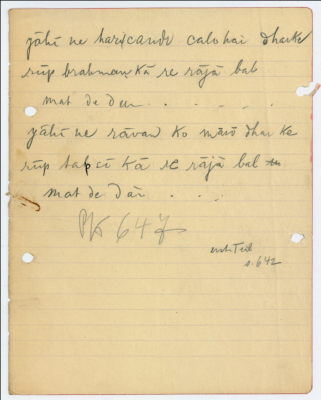 yāhī ne haricand calo hai dharke
rūp brahman kā re rājā bal
mat de dān . . . . .
yāhī ne rāvan ko māro dhar ke
rūp tapsī kā re rājā bal
mat de dān . . .
PK 647
s. 642